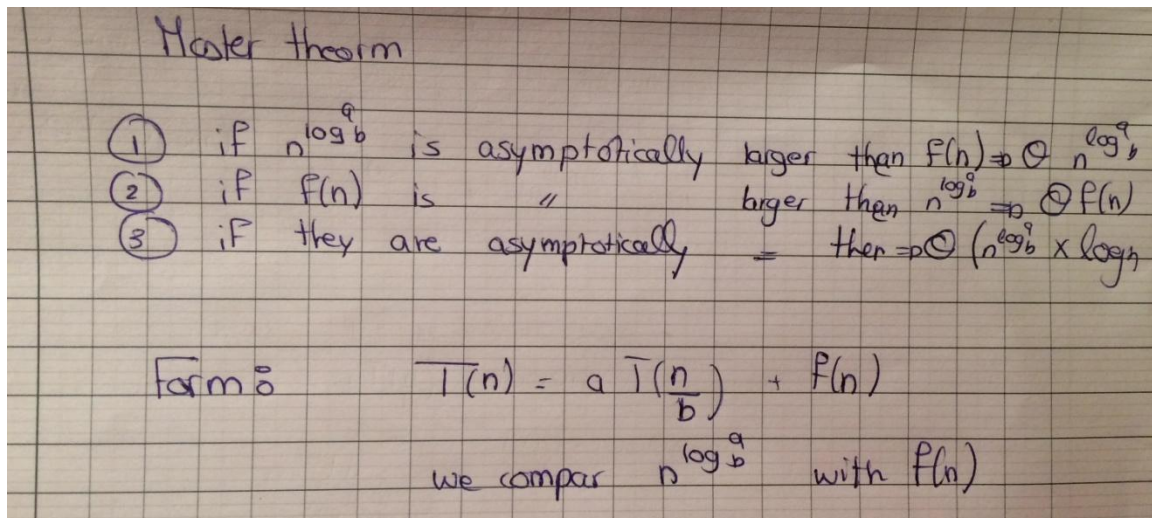 Master theorm
① if n^log_b^a is asymptotically larger than f(n) ⇒ Θ n^log_b^a
② if f(n) is 〃 larger than n^log_b^a ⇒ Θ f(n)
③ if they are asymptotically = then ⇒ Θ (n^log_b^a × logn
Form: T(n) = a T(n/b) + f(n)
we compar n^log_b^a with f(n)